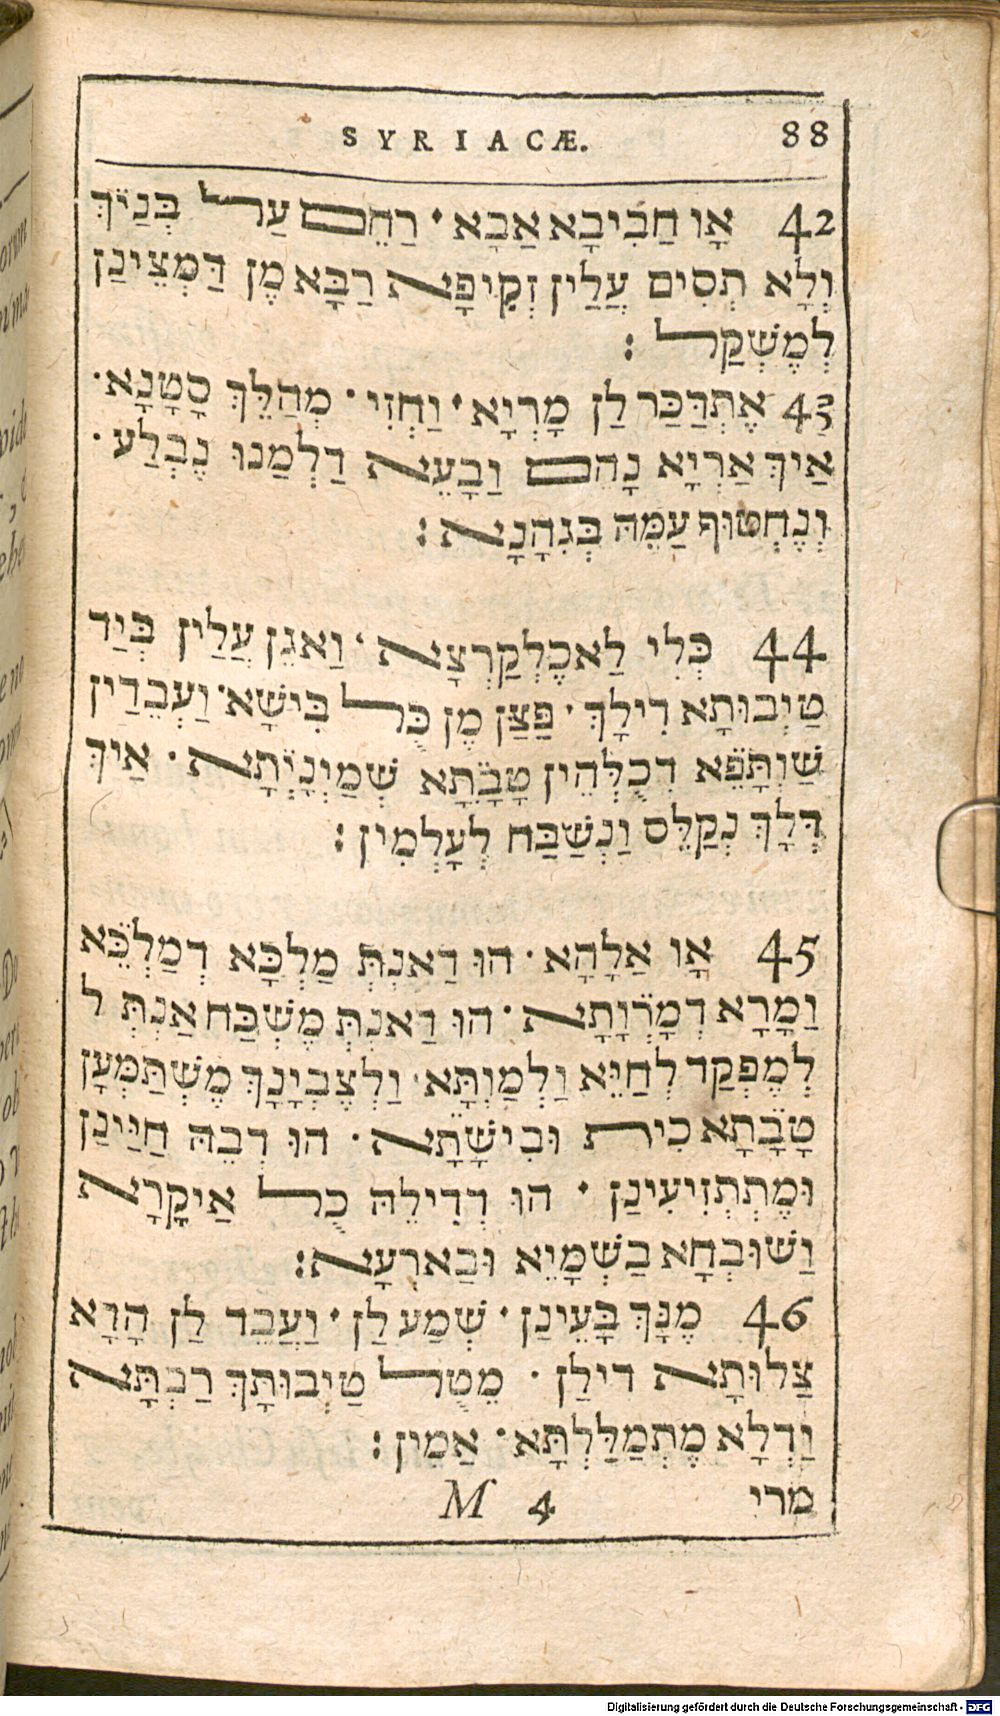 SYRIACÆ. 88
42 אָו חַבִיבָא אַבָא · רַחֵם עַל בְּנַיךְ
וְלָא תְסִים עֲלַין זְקִיפָא רַבָּא מֶן דַּמְצֵינַן
לְמֶשְׁקַל :
43 אֶתְדַּכַּר לַן מָרְיָא · וַחְזִי · מְהַלֵּךְ סָטָנָא ·
אַיךְ אַרְיָא נָהֵם וַבָעֵא דַלְמַנוּ נֶבְלַע ·
וְנֶחְטוּף עַמֵּהּ בְּגִהָנָא :
44 כְּלִי לַאכֶלְקַרְצָא · וַאגֵן עֲלַין בְּיַד
טַיְבוּתָא דִילָךְ · פַּצַּן מֶן כֻּל בִּישָׁא · וַעְבֵדַין
שַׁוְתָּפֵא דִכֻלְּהֵין טָבָתָא שְׁמַיְנָיְתָא · אַיךְ
דְּלָךְ נְקַלֵּס וַנְשַׁבַּח לְעָלְמִין :
45 אָו אַלָהָא · הוּ דַאנְתְּ מַלְכָּא דְמַלְכֵּא
וַמָרָא דְמָרְוָתָא · הוּ דַּאנתְּ מֶשְׁכַּח אַנְתְּ ל
לְמֶפְקַד לְחַיֵּא וַלְמַוְתָּא · וַלְצֶבְיָנָךְ מֶשְׁתַּמְּעָן
טָבָתָא כִית וּבִישָׁתָא · הוּ דְבֵהּ חַיַּינַן
וּמֶתְתְזִיעִינַן · הוּ דְדִילֵהּ כֻל אַיקָרָא
וַשׁוּבְחָא בַשְׁמַיָּא וּבַארְעָא :
46 מֶנָּךְ בָּעֵינַן · שְׁמַע לַן · וַעֲבֵד לַן הָדָא
צַלוּתָא דילַן · מֵטֻל טַיְבוּתָךְ רַבְּתָא
וַדְלָא מֶתְמַלַּלְתָּא · אַמִין :
M 4 מרי
Digitalisierung gefördert durch die Deutsche Forschungsgemeinschaft - DFG